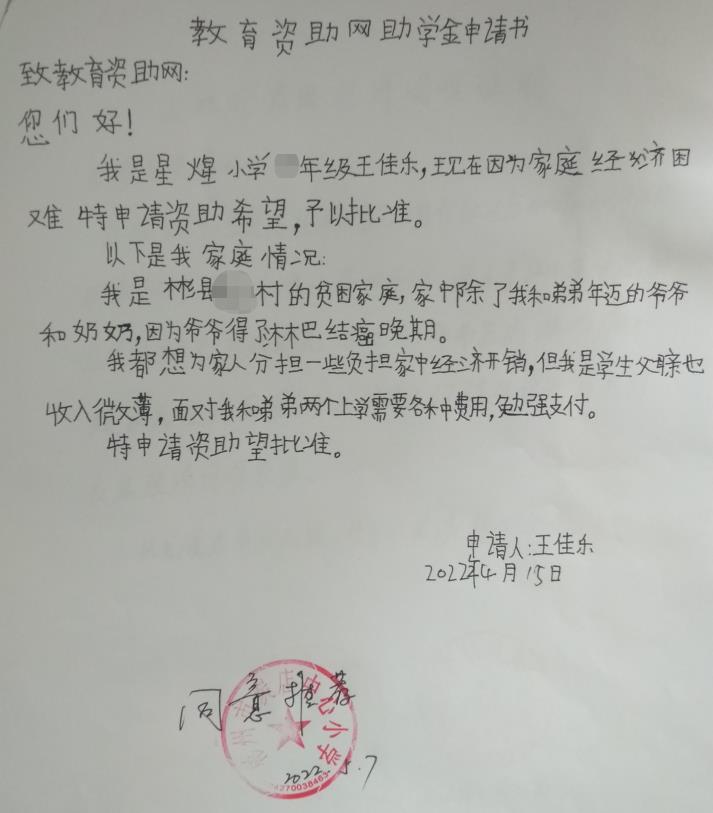 教育资助网助学金申请书
致教育资助网:
您们好!
我是星煌小学年级王佳乐,现在因为家庭经济困
难特申请资助希望,予以批准。
以下是我家庭情况:
我是彬县村的贫困家庭,家中除了我和弟弟年迈的爷爷
和奶奶,因为爷爷得了淋巴结癌晚期。
我都想为家人分担一些负担家中经济开销,但我是学生父母亲也
收入微薄,面对我和弟弟两个上学需要各种费用,勉强支付。
特申请资助望批准。
申请人:王佳乐
2022年4月15日
同意推荐
店中心小学
2022.5.7